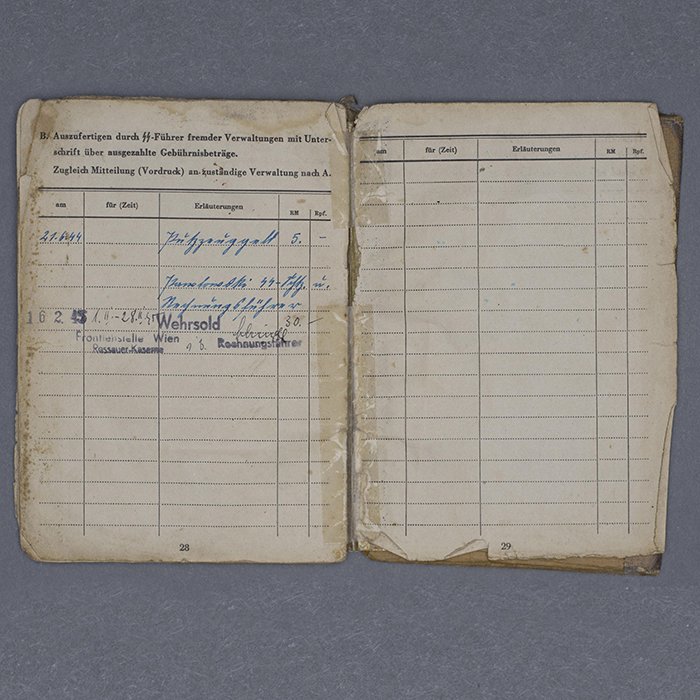 B. Auszufertigen durch ᛋᛋ-Führer fremder Verwaltungen mit Unter-
schrift über ausgezahlte Gebührnisbeträge.
Zugleich Mitteilung (Vordruck) an zuständige Verwaltung nach A.
am für (Zeit) Erläuterungen RM Rpf.
21.6.44 Putzzeuggeld 5. –
ᛋᛋ-Schtz. u.
Rechnungsführer
16 2. 45 Wehrsold 30. –
Frontleitstelle Wien Rechnungsführer
Rossauer-Kaserne
28
am für (Zeit) Erläuterungen RM Rpf.
29